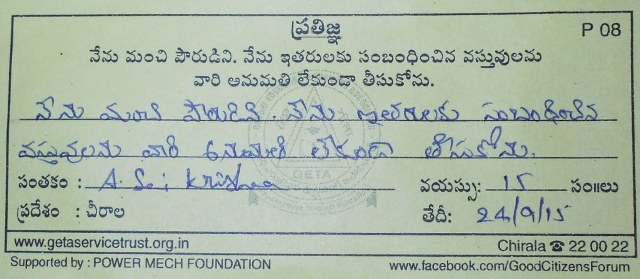 ప్రతిజ్ఞ
P 08
నేను మంచి పౌరుడిని. నేను ఇతరులకు సంబంధించిన వస్తువులను
వారి అనుమతి లేకుండా తీసుకోను.
నేను మంచి పౌరుడిని. నేను ఇతరులకు సంబంధించిన
వస్తువులను వారి అనుమతి లేకుండా తీసుకోను.
సంతకం : A. Sai Krishna వయస్సు: 15 సం॥లు
ప్రదేశం : చీరాల తేదీ: 24/9/15
GETA
www.getaservicetrust.org.in Chirala ☎ 22 00 22
Supported by : POWER MECH FOUNDATION www.facebook.com/GoodCitizensForum